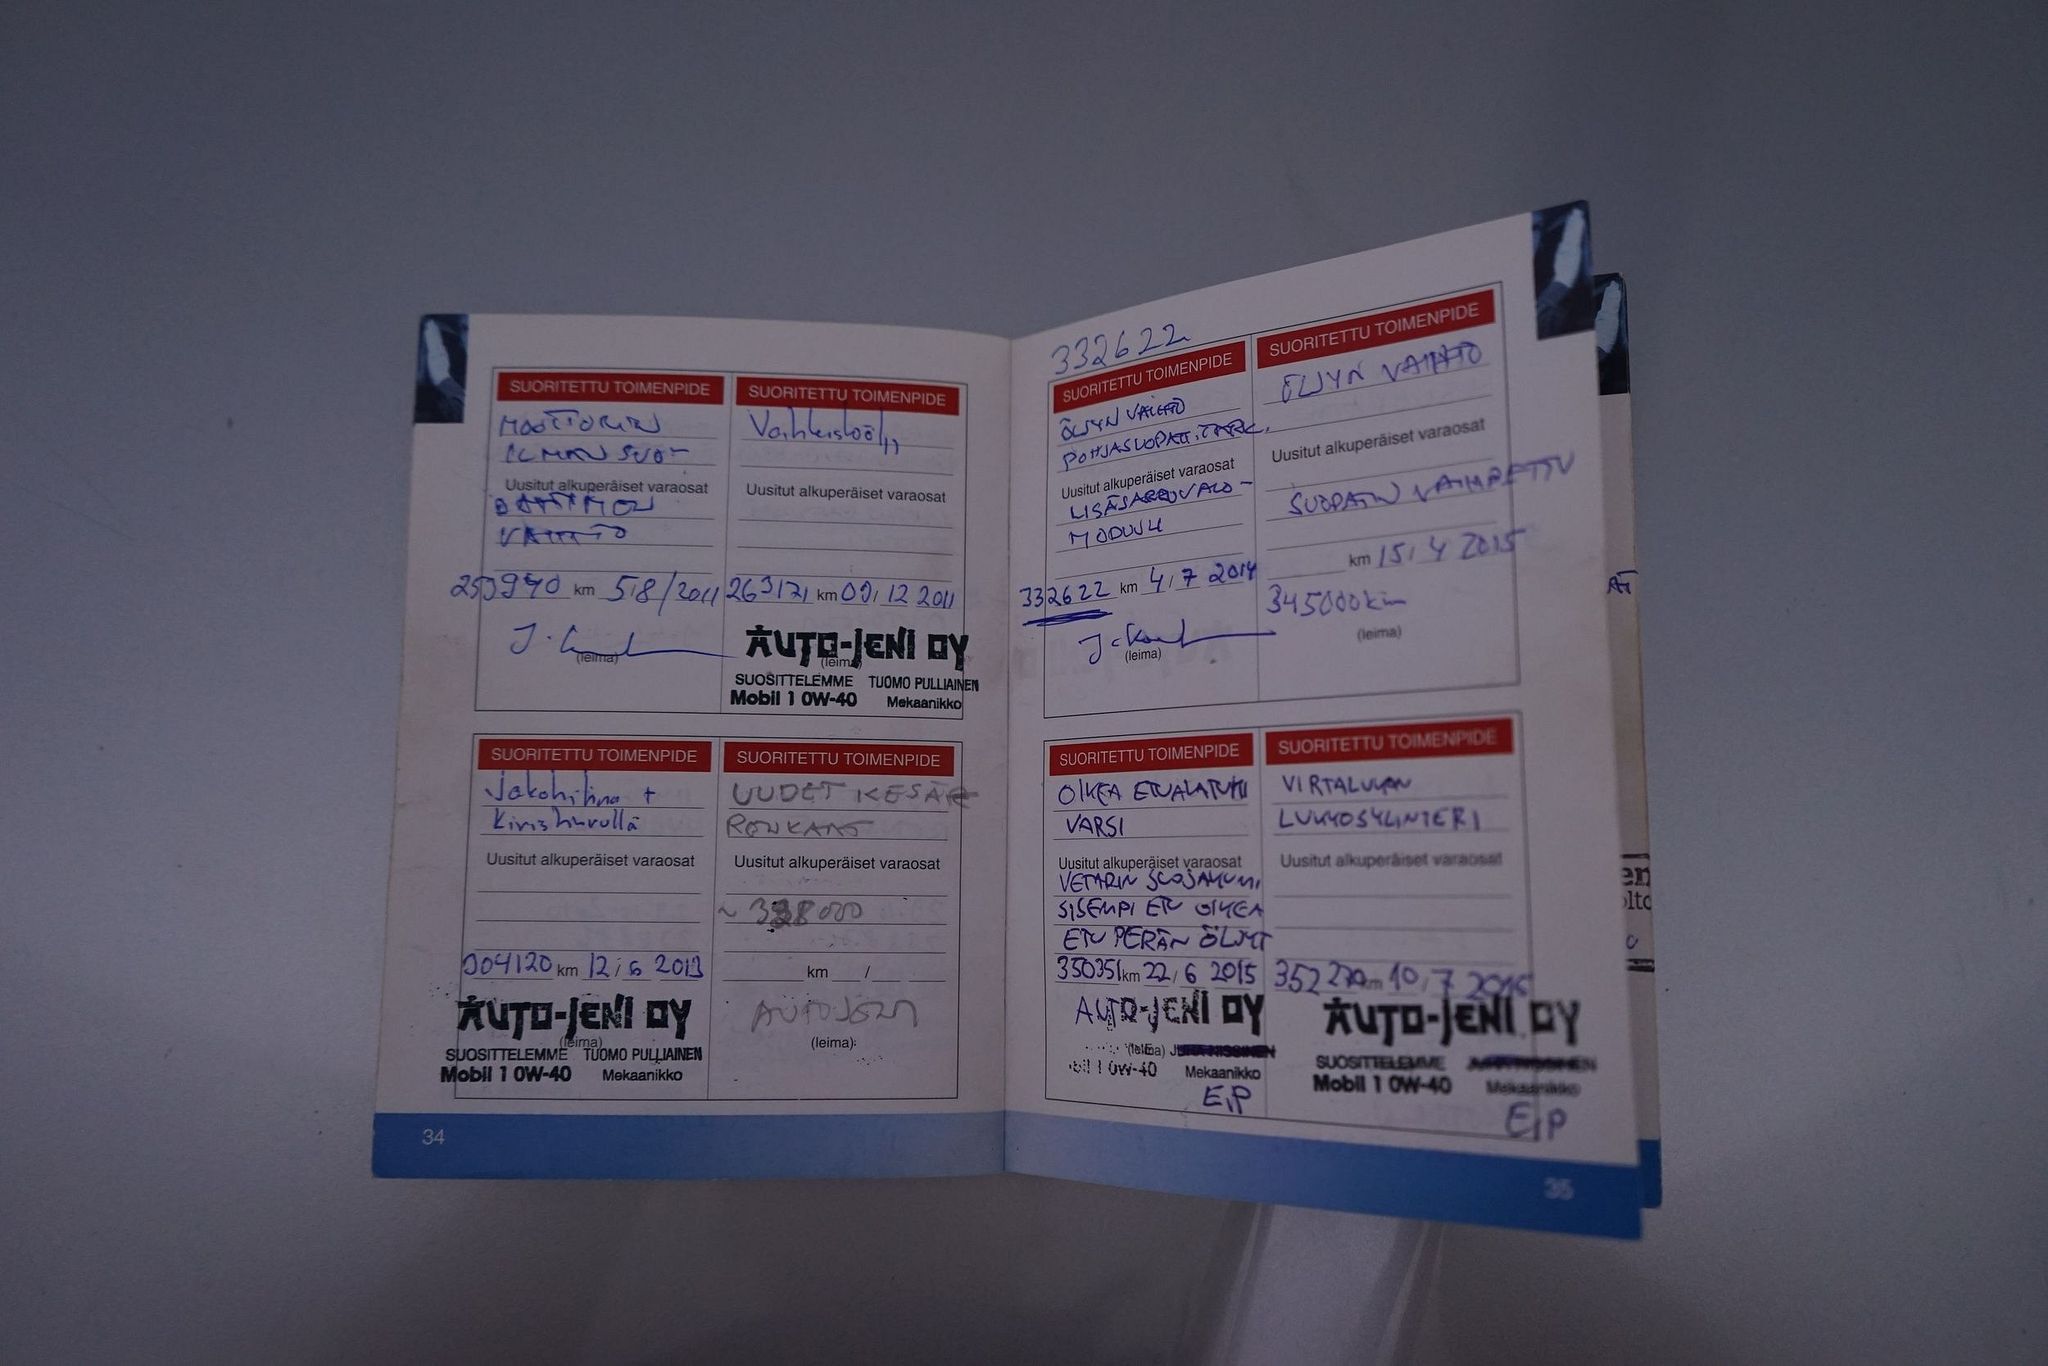 SUORITETTU TOIMENPIDE
MOOTTORIN
ILMANSUO-
Uusitut alkuperäiset varaosat
DATTIMEN
VAIHTO
253940 km 5/8/2011
J.
(leima)
SUORITETTU TOIMENPIDE
Vaihteistoöljy
Uusitut alkuperäiset varaosat
263121 km 09/12 2011
AUTO-JENI OY
(leima)
SUOSITTELEMME TUOMO PULLIAINEN
Mobil 1 0W-40 Mekaanikko
SUORITETTU TOIMENPIDE
Jakohihna +
Kiristinrulla
Uusitut alkuperäiset varaosat
304120 km 12/6 2013
AUTO-JENI OY
(leima)
SUOSITTELEMME TUOMO PULLIAINEN
Mobil 1 0W-40 Mekaanikko
SUORITETTU TOIMENPIDE
UUDET KESÄR
RENKAAT
Uusitut alkuperäiset varaosat
~ 328000
km /
AUTOJENI
(leima)
34
332622
SUORITETTU TOIMENPIDE
ÖLJYN VAIHTO
POHJASUOPAT. TARK.
Uusitut alkuperäiset varaosat
LISÄJARRUVALO-
MODUULI
332622 km 4/7 2014
J.
(leima)
SUORITETTU TOIMENPIDE
ÖLJYN VAIHTO
Uusitut alkuperäiset varaosat
SUODATIN VAIHDETTU
km 15/4 2015
345000km
(leima)
SUORITETTU TOIMENPIDE
OIKEA ETUALATUKI
VARSI
Uusitut alkuperäiset varaosat
VETARIN SUOJAKUMI
SISEMPI ETU OIKEA
ETU PERÄN ÖLJYT
350351 km 22/6 2015
AUTO-JENI OY
(leima)
Mobil 1 0W-40 Mekaanikko
E.P
SUORITETTU TOIMENPIDE
VIRTALUKON
LUKKOSYLINTERI
Uusitut alkuperäiset varaosat
352270 km 10/7 2015
AUTO-JENI OY
SUOSITTELEMME
Mobil 1 0W-40 Mekaanikko
E.P
35